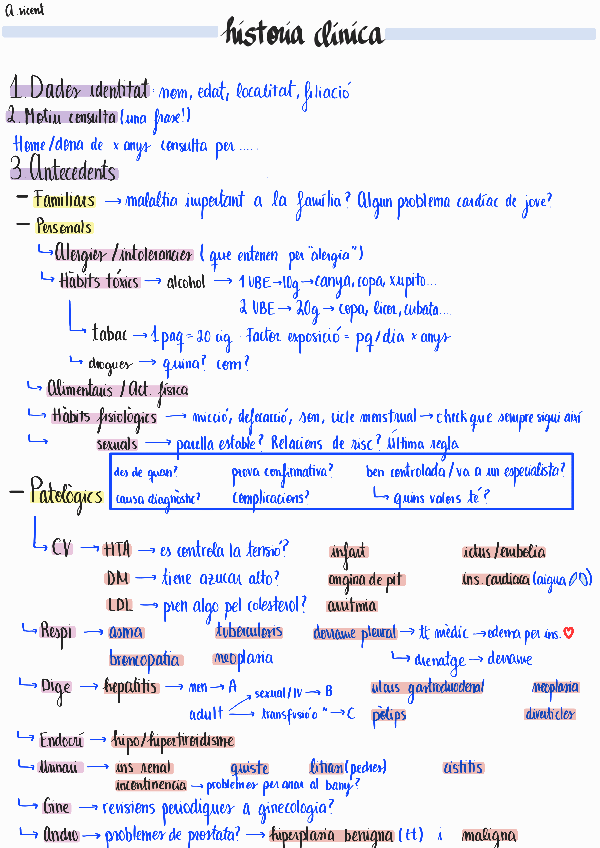 a. vicent
història clínica
1. Dades identitat: nom, edat, localitat, filiació
2. Motiu consulta (una frase!)
Home/dona de x anys consulta per .....
3 Antecedents
- Familiars → malaltia important a la família? Algun problema cardíac de jove?
- Personals
↳ Alergies/intolerancies (que entenen per "alergia")
↳ Hàbits tòxics → alcohol → 1 UBE → 10g → canya, copa, xupito...
2 UBE → 20g → copa, licor, cubata....
↳ tabac → 1 paq = 20 cig. Factor exposició = pq/dia x anys
↳ drogues → quina? com?
↳ Alimentaris / Act. física
↳ Hàbits fisiològics → micció, defecació, son, cicle menstrual → check que sempre sigui així
↳ sexuals → parella estable? Relacions de risc? Última regla
des de quan? prova confirmativa? ben controlada/va a un especialista?
- Patològics causa diagnòstic? complicacions? ↳ quins valors té?
↳ CV → HTA → es controla la tensió? infart ictus/embolia
DM → tiene azucar alto? angina de pit ins. cardiaca (aigua)
LDL → pren algo pel colesterol? arritmia
↳ Respi → asma tuberculosis derrame pleural → tt mèdic → edema per ins. ♡
broncopatia neoplasia ↳ drenatge → derrame
↳ Dige → hepatitis → nen → A sexual/IV → B ulcus gastroduodenal neoplasia
adult → transfusió " → C pòlips diverticles
↳ Endocrí → hipo/hipertiroidisme
↳ Urinari → ins renal quiste litiasi (pedres) cistitis
incontinencia → problemes per anar al bany?
↳ Gine → revisions periodiques a ginecologia?
↳ Andro → problemes de prostata? → hiperplasia benigna (tt) i maligna